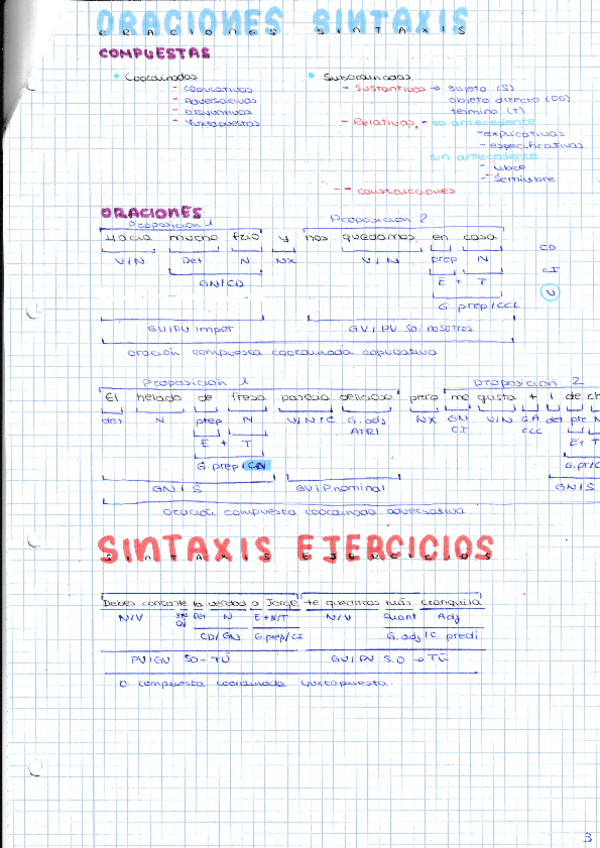 ORACIONES SINTAXIS
ORACIONES SINTAXIS
COMPUESTAS
• Coordinadas
- copulativas
- adversativas
- disyuntivas
- Yuxtapuestas
• Subordinadas
- Sustantivas → sujeto (S)
objeto directo (OD)
término (T)
- Relativas, - co antecedente
- explicativas
- especificativas
sin antecedente
- libre
- semilibre
-- construcciones
ORACIONES
Proposición 1 Proposición 2
Hacía mucho frío y nos quedamos en casa
V/N Det N NX V/N prep N
GN/CD E + T
G. prep/CCL
CD
CI
V
GV/PV impor GV/PV so: nosotros
oración compuesta coordinada copulativa
Proposición 1 proposición 2
El helado de fresa parecía delicioso pero me gusta + l de ch
det N prep N V/N/C G. adj NX GN V/N GA det pre N
E + T ATRI CI CCC E+ T
G. prep/CN G. pr/C
GN/S GV/Pnominal GN/S
oración compuesta coordinada adversativa
SINTAXIS EJERCICIOS
SINTAXIS EJERCICIOS
Debes contarle la verdad a Jorge te quedarás más tranquila
N/V Det N E+N/T N/V Cuant Adj
CD/GN G.prep/CI G. adj/C. predi
PV/GN SO- TÚ GV/PV S.O → TÚ
O compuesta coordinada yuxtapuesta
3